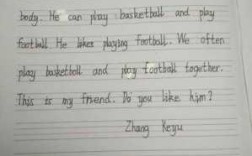 body. He can play basketball and play
football He likes playing football. We often
play basketball and play football together.
This is my friend. Do you like him?
Zhang Keyu